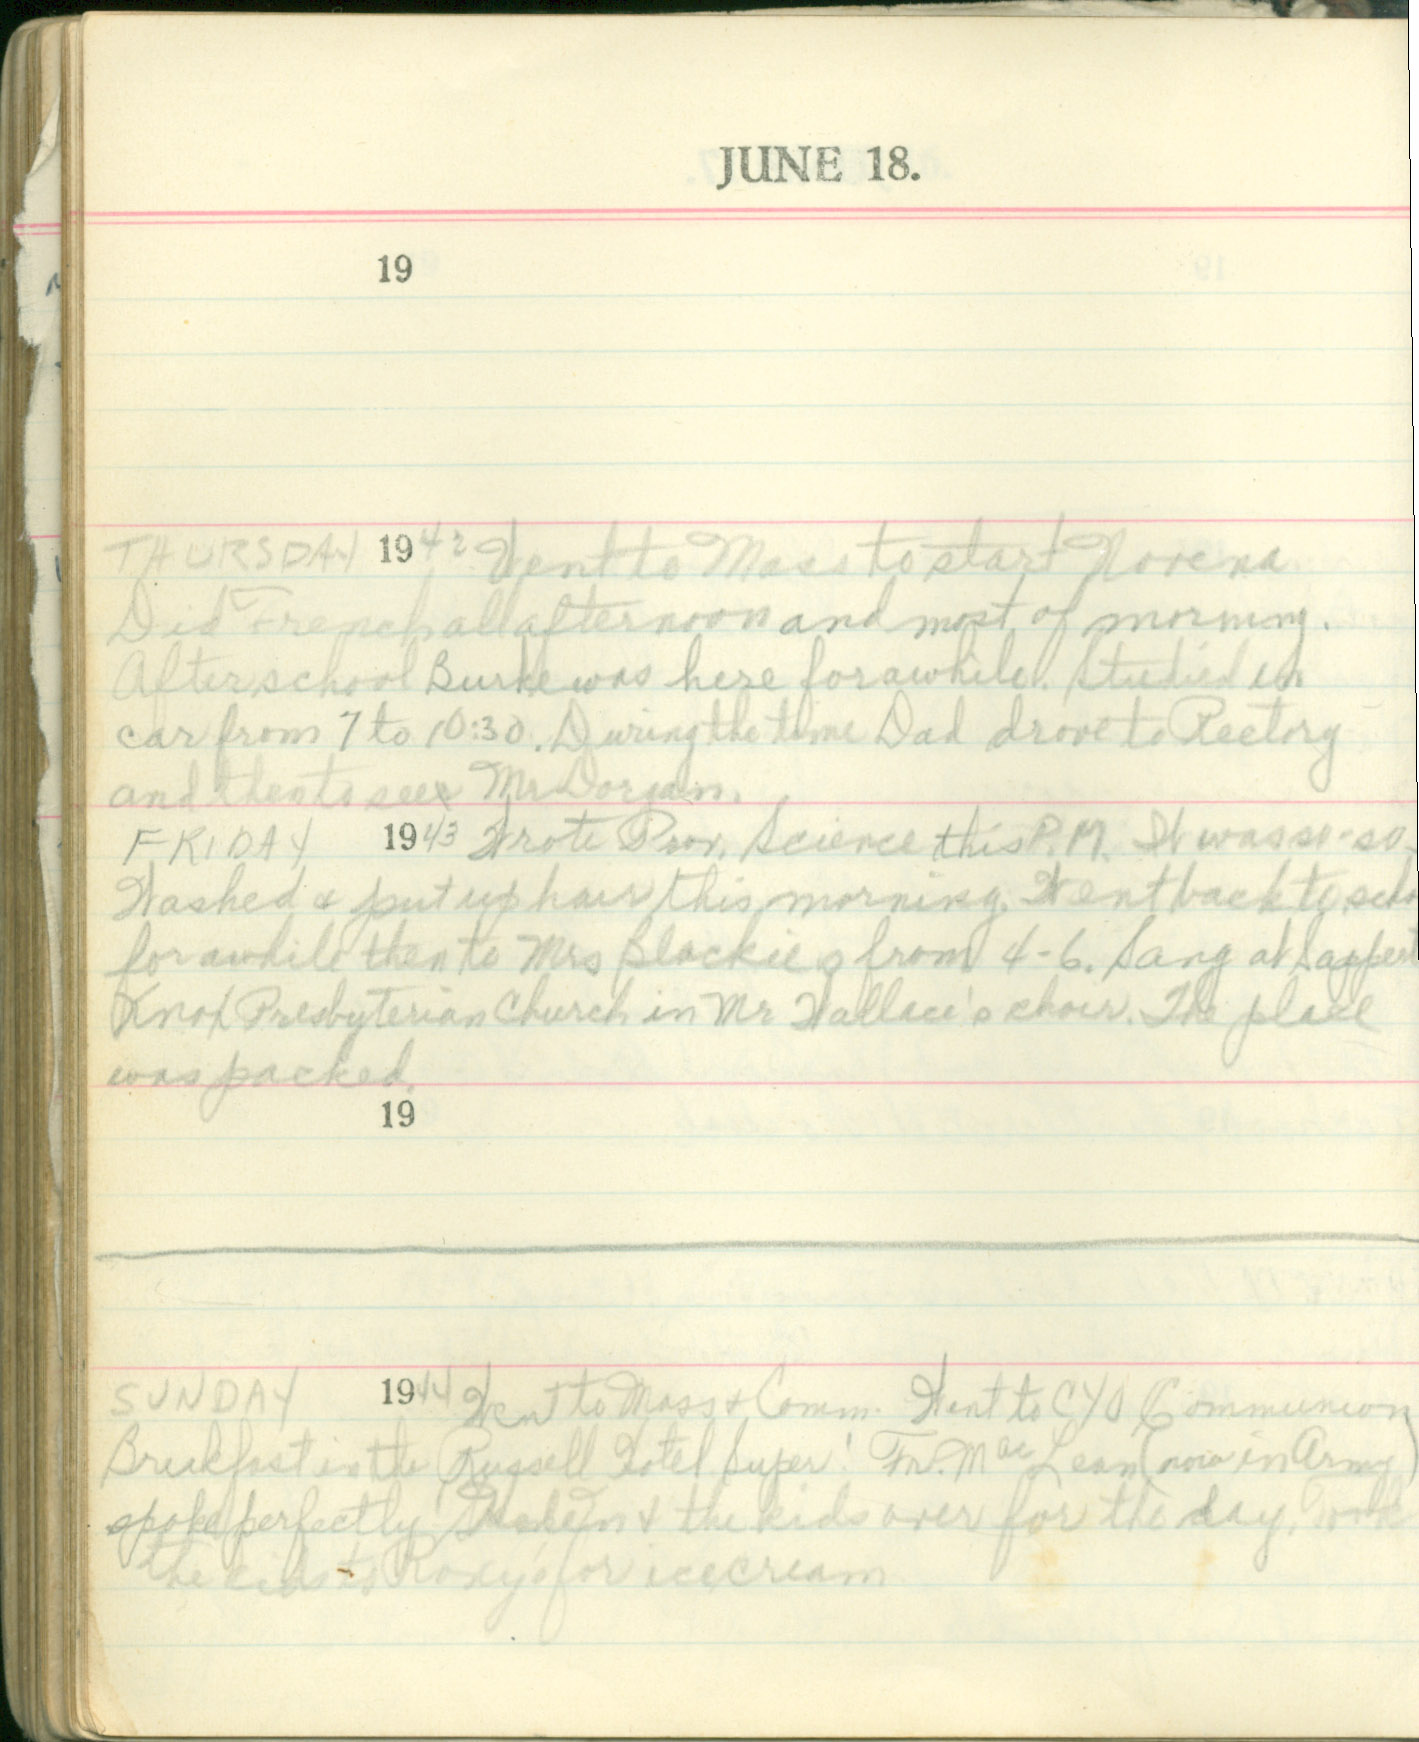 JUNE 18.
19
THURSDAY 1942 Went to Mass to start Novena
Did French all afternoon and most of morning.
After school Burke was here for awhile. Studied in
car from 7 to 10:30. During the time Dad drove to Rectory
and then to see Mr Dorgan.
FRIDAY 1943 Wrote Prov. Science this P.M. It was so-so.
Washed & put up hair this morning. Went back to
for awhile then to Mrs Blackie's from 4-6. Sang at
Knox Presbyterian Church in Mr Wallace's choir. The place
was packed.
19
SUNDAY 1944 Went to Mass & Comm. Went to CYO Communion
Breakfast in the Russell Hotel Super! Fr. MacLean (now in Army)
spoke perfectly. & the kids over for the day. Took
the kids to Roxy's for icecream